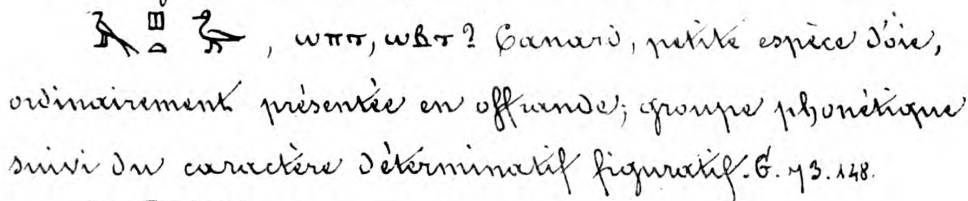 𓄿𓊪𓏏𓅬, ⲱⲡⲧ, ⲱⲃⲧ ? Canard, petite espèce d'oie,
ordinairement présentée en offrande; groupe phonétique
suivi du caractère déterminatif figuratif. G. 73. 148.